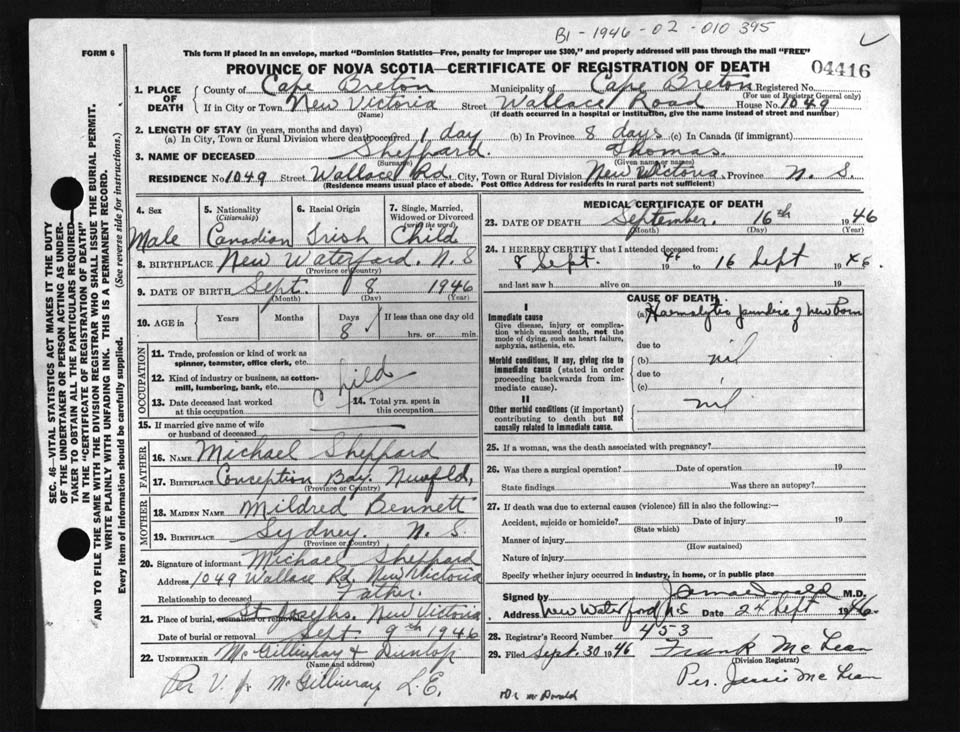 B1-1946-02-010395
FORM 6
This form if placed in an envelope, marked "Dominion Statistics—Free, penalty for improper use $300," and properly addressed will pass through the mail "FREE"
PROVINCE OF NOVA SCOTIA—CERTIFICATE OF REGISTRATION OF DEATH
04416
1. PLACE OF DEATH
County of Cape Breton Municipality of Cape Breton Registered No.
(For use of Registrar General only)
If in City or Town New Victoria Street Wallace Road House No. 1049
(Name) (If death occurred in a hospital or institution, give the name instead of street and number)
2. LENGTH OF STAY (in years, months and days)
(a) In City, Town or Rural Division where death occurred 1 day (b) In Province 8 days (c) In Canada (if immigrant)
3. NAME OF DECEASED Sheppard Thomas
(Surname) (Given name or names)
RESIDENCE No. 1049 Street Wallace Rd., City, Town or Rural Division New Victoria, Province N. S.
(Residence means usual place of abode. Post Office Address for residents in rural parts not sufficient)
SEC. 46—VITAL STATISTICS ACT MAKES IT THE DUTY
OF THE UNDERTAKER OR PERSON ACTING AS UNDER-
TAKER TO OBTAIN ALL THE PARTICULARS REQUIRED
IN THE "CERTIFICATE OF REGISTRATION OF DEATH"
AND TO FILE THE SAME WITH THE DIVISION REGISTRAR WHO SHALL ISSUE THE BURIAL PERMIT.
WRITE PLAINLY WITH UNFADING INK. THIS IS A PERMANENT RECORD.
Every item of information should be carefully supplied. (See reverse side for instructions.)
4. Sex
Male
5. Nationality
(Citizenship)
Canadian
6. Racial Origin
Irish
7. Single, Married,
Widowed or Divorced
(write the word)
Child
8. BIRTHPLACE New Waterford, N.S
(Province or Country)
9. DATE OF BIRTH Sept. 8 1946
(Month) (Day) (Year)
10. AGE in Years Months Days If less than one day old
8 hrs. or min.
OCCUPATION
11. Trade, profession or kind of work as
spinner, teamster, office clerk, etc.
12. Kind of industry or business, as cotton-
mill, lumbering, bank, etc.
Child
13. Date deceased last worked
at this occupation
14. Total yrs. spent in
this occupation
15. If married give name of wife
or husband of deceased
FATHER
16. NAME Michael Sheppard
17. BIRTHPLACE Conception Bay. Newfld,
(Province or Country)
MOTHER
18. MAIDEN NAME Mildred Bennett
19. BIRTHPLACE Sydney, N. S.
(Province or Country)
20. Signature of informant Michael Sheppard
Address 1049 Wallace Rd. New Victoria
Relationship to deceased Father.
21. Place of burial, cremation or removal St. Josephs. New Victoria
Date of burial or removal Sept 9th 1946
22. UNDERTAKER McGillivray & Dunlop
(Name and address)
Per V. Jr McGillivray L.E.
MEDICAL CERTIFICATE OF DEATH
23. DATE OF DEATH September. 16th 1946
(Month) (Day) (Year)
24. I HEREBY CERTIFY that I attended deceased from:
8 Sept. 1946 to 16 Sept 1946.
and last saw h alive on 19
CAUSE OF DEATH
I
Immediate cause
Give disease, injury or complica-
tion which caused death, not the
mode of dying, such as heart failure,
asphyxia, asthenia, etc.
(a) Haemolytic jaundice of new born
due to
Morbid conditions, if any, giving rise to
immediate cause (stated in order
proceeding backwards from im-
mediate cause).
(b) nil
due to
(c)
II
Other morbid conditions (if important)
contributing to death but not
causally related to immediate cause.
nil
25. If a woman, was the death associated with pregnancy?
26. Was there a surgical operation? Date of operation 19
State findings Was there an autopsy?
27. If death was due to external causes (violence) fill in also the following:—
Accident, suicide or homicide? Date of injury 19
(State which)
Manner of injury
(How sustained)
Nature of injury
Specify whether injury occurred in industry, in home, or in public place
Signed by MacDonald M.D.
Address New Waterford N.S Date 24 Sept 1946.
28. Registrar's Record Number 453
29. Filed Sept. 30 1946 Frank McLean
(Division Registrar)
Per. Jessie McLean
Dr. McDonald